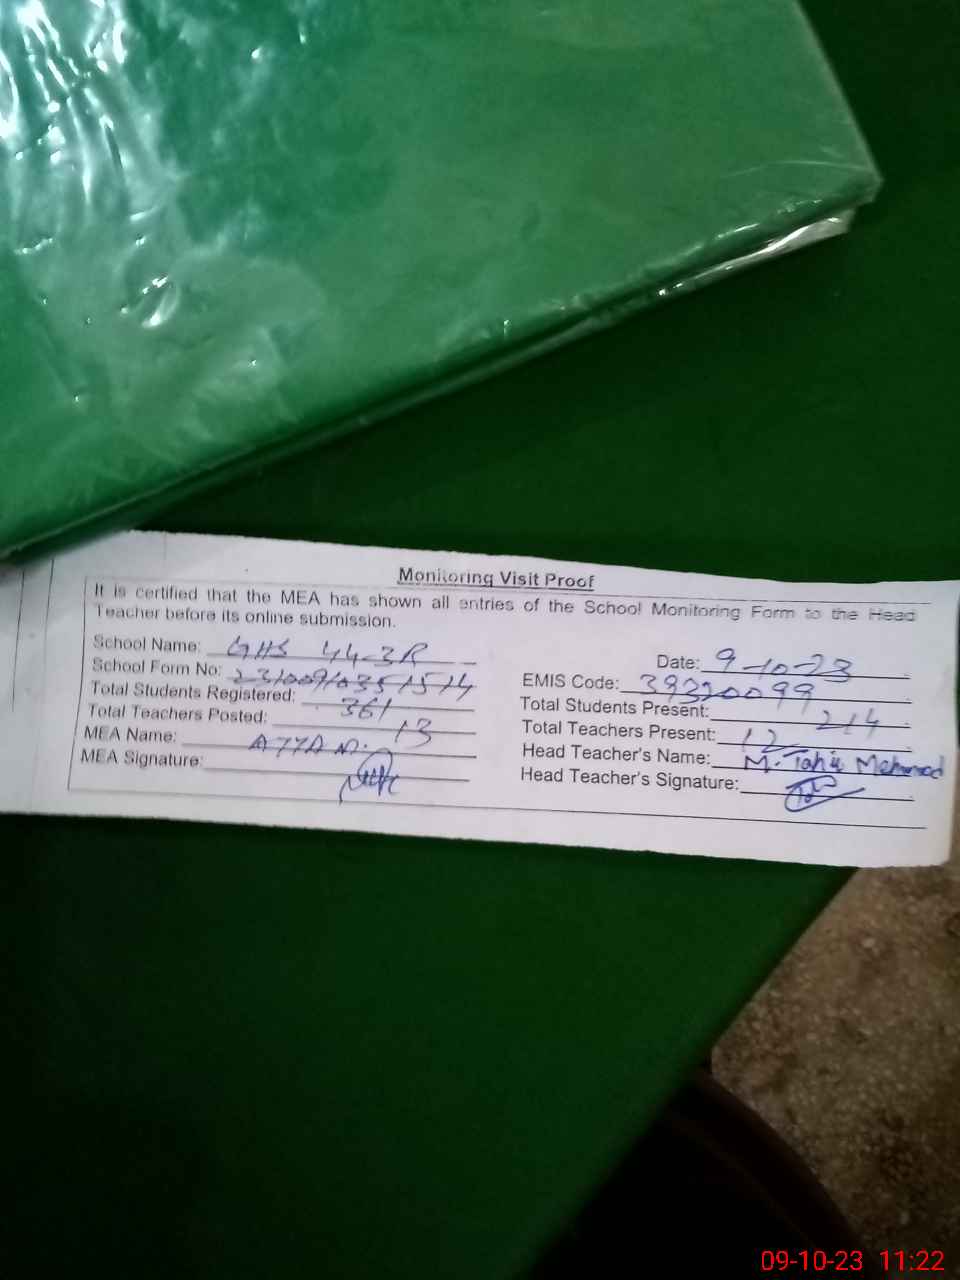 Monitoring Visit Proof
It is certified that the MEA has shown all entries of the School Monitoring Form to the Head
Teacher before its online submission.
School Name: GHS 44-3R
Date: 9-10-23
School Form No:
EMIS Code: 39320099
Total Students Registered: 361
Total Students Present: 214
Total Teachers Posted: 13
Total Teachers Present: 12
MEA Name: ATTA M.
Head Teacher's Name: M. Tahir Mehmood
MEA Signature:
Head Teacher's Signature:
09-10-23 11:22